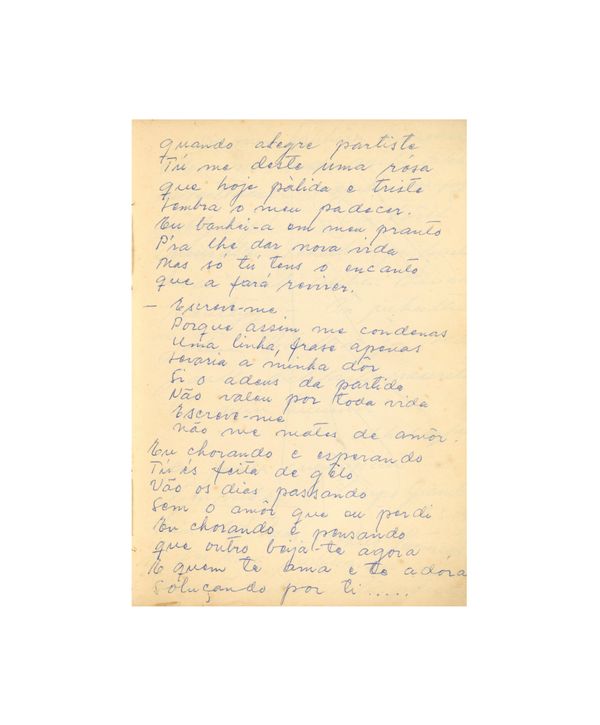 quando alegre partiste
Tú me deste uma rósa
que hoje pàlida e triste
Lembra o meu padecer.
Eu banhei-a em meu pranto
P'ra lhe dar nova vida
Mas só tú tens o encanto
que a fará reviver.
— Escreve-me
Pórque assim me condenas
Uma linha, frase apenas
Levaria a minha dôr
Si o adeus da partida
Não valeu por toda vida
Escreve-me
não me mates de amôr.
Eu chorando e esperando
Tú és feita de gêlo
Vão os dias passando
Sem o amôr que eu perdi
Eu chorando e pensando
que outro beija-te agora
E quem te ama e te adóra
Soluçando por ti.....